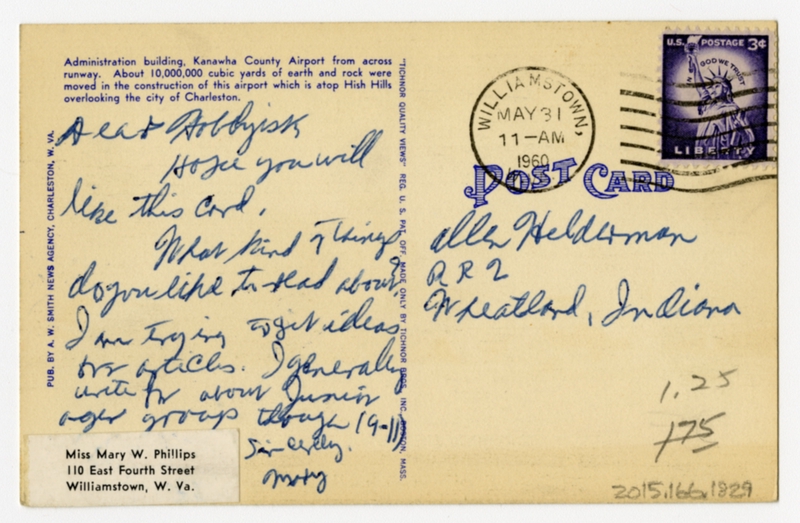 Administration building, Kanawha County Airport from across
runway. About 10,000,000 cubic yards of earth and rock were
moved in the construction of this airport which is atop Hish Hills
overlooking the city of Charleston.
Dear Hobbyist
Hope you will
like this card.
What kind of things
do you like to read about.
I am trying to get ideas
for articles. I generally
write for about Junior
ager group though (9-11)
Sincerely,
Mary
Miss Mary W. Phillips
110 East Fourth Street
Williamstown, W. Va.
PUB. BY A. W. SMITH NEWS AGENCY, CHARLESTON, W. VA.
"TICHNOR QUALITY VIEWS" REG. U. S. PAT. OFF. MADE ONLY BY TICHNOR BROS. INC., BOSTON, MASS.
WILLIAMSTOWN,
MAY 31
11-AM
1960
U.S. POSTAGE 3¢
IN GOD WE TRUST
LIBERTY
POST CARD
Allen Helderman
R R 2
Wheatland, Indiana
1.25
175
2015.166.1829